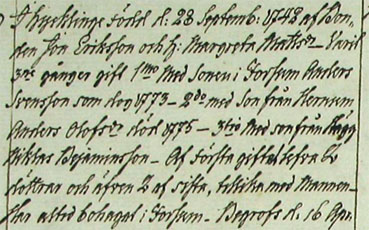 I hycklinge född d: 23 Septemb: 1742 af Bon,
den Jön Erikson och H: Margreta Matts - Varit
3ne gånger gift 1mo Med Sonen i Forsum Anders
Svensson som dog 1773 - 2do med Son från
Anders Olofsn död 1775 - 3tio Med son från Hägg
Niklas Bejaminsson - Af första giftet lefva
döttrar och äfven 2 af sista, tillika med Mannen -
Har altid bohagat i Forsum - Begrofs d. 16 Apr.